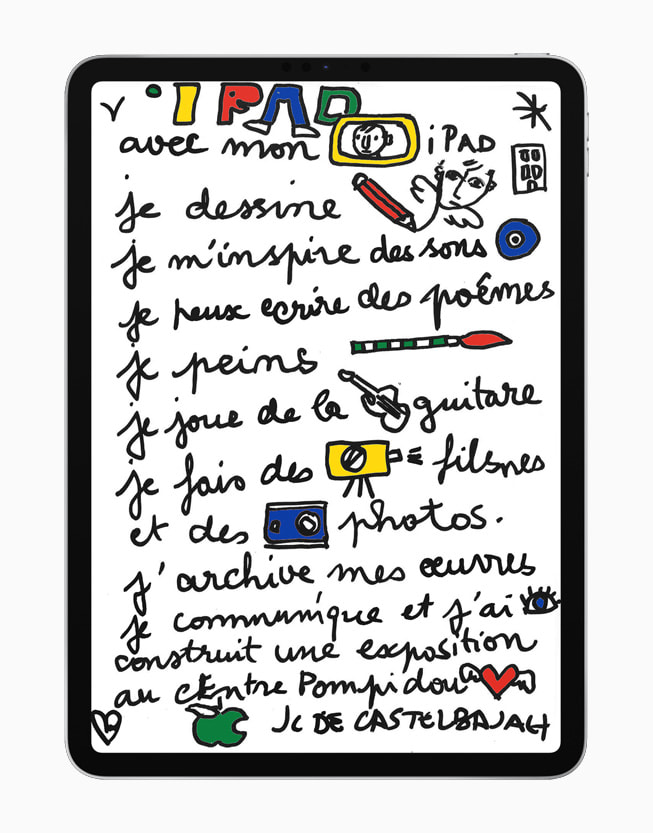 iPAD
avec mon iPAD
je dessine
je m'inspire des sons
je peux ecrire des poêmes
je peins
je joue de la guitare
je fais des films
et des photos.
j'archive mes œuvres
je communique et j'ai
construit une exposition
au centre Pompidou
JC DE CASTELBAJAC